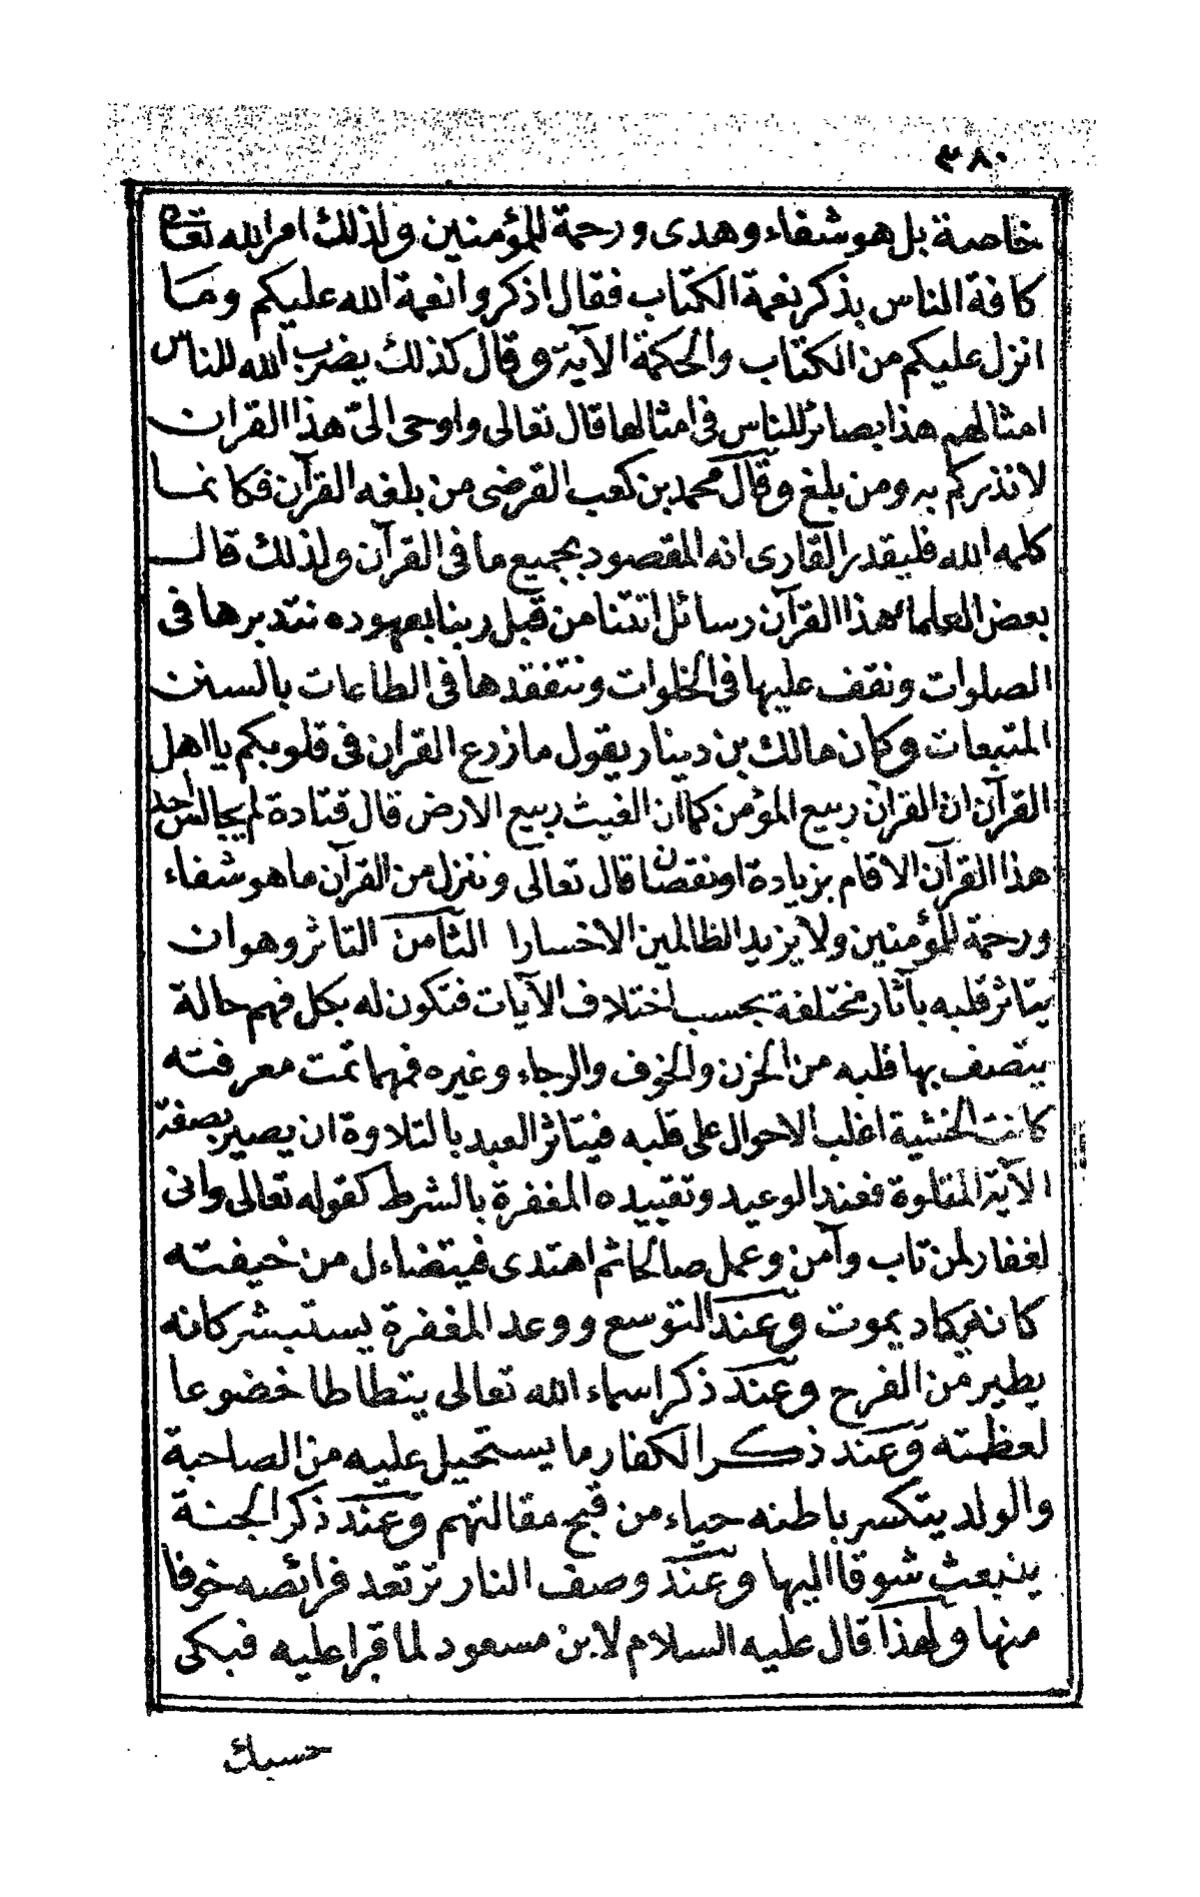 ٣٨٠
خاصة بل هو شفاء وهدى ورحمة للمؤمنين ولذلك امر الله تعالى
كافة الناس بذكر نعمة الكتاب فقال اذكروا نعمة الله عليكم وما
انزل عليكم من الكتاب والحكمة الآية وقال كذلك يضرب الله للناس
امثالهم هذا بصائر للناس فى امثالها قال تعالى واوحى الىّ هذا القران
لانذركم به ومن بلغ وقال محمد بن كعب القرضى من بلغه القرآن فكانما
كلمه الله فليقدر القارى انه المقصود بجميع ما فى القرآن ولذلك قال
بعض العلماء هذا القرآن رسائل اتتنا من قبل ربنا بعهوده نتدبرها فى
الصلوات ونقف عليها فى الخلوات ونتفقدها فى الطاعات بالسنن
المتبعات وكان مالك بن دينار يقول ما زرع القران فى قلوبكم يا اهل
القرآن ان القرآن ربيع المؤمن كما ان الغيث ربيع الارض قال قتادة لم يجالس احد
هذا القرآن الا قام بزيادة او نقصان قال تعالى وننزل من القرآن ما هو شفاء
ورحمة للمؤمنين ولا يزيد الظالمين الا خسارا الثامن التاثر وهو ان
يتاثر قلبه بآثار مختلفة بحسب اختلاف الآيات فتكون له بكل فهم حالة
يتصف بها قلبه من الحزن والخوف والرجاء وغيره فمهما تمت معرفته
كانت الخشية اغلب الاحوال على قلبه فيتاثر العبد بالتلاوة ان يصير بصفة
الآية المتلوة فعند الوعيد وتقييده المغفرة بالشرط كقوله تعالى وانى
لغفار لمن تاب وآمن وعمل صالحا ثم اهتدى فيتضاءل من خيفته
كانه يكاد يموت وعند التوسع ووعد المغفرة يستبشر كانه
يطير من الفرح وعند ذكر اسماء الله تعالى يتطاطا خضوعا
لعظمته وعند ذكر الكفار ما يستحيل عليه من الصاحبة
والولد يتكسر باطنه حياء من قبح مقالتهم وعند ذكر الجنة
ينبعث شوقا اليها وعند وصف النار ترتعد فرائصه خوفا
منها ولهذا قال عليه السلام لابن مسعود لما قرا عليه فبكى
حسبك